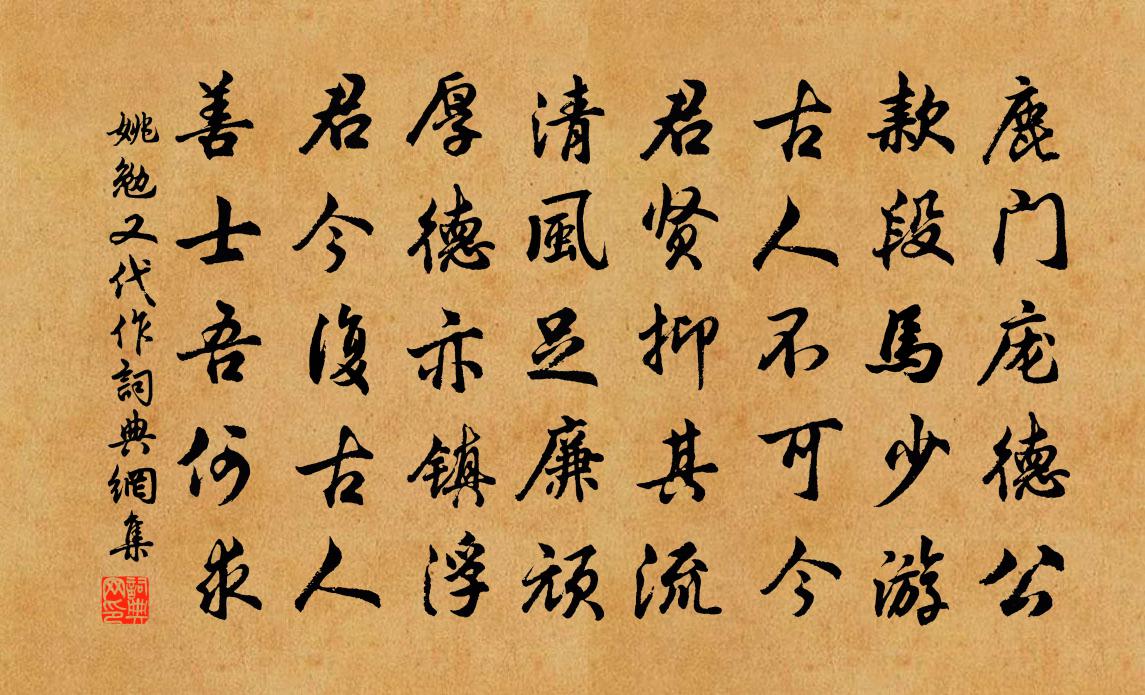 鹿门庞德公
款段馬少游
古人不可今
君贤抑其流
清風足廉頑
厚德亦镇浮
君今復古人
善士吾何求
姚勉又代作詞典網集
詞典网印